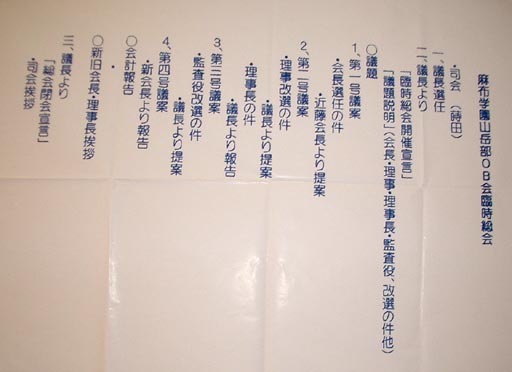 麻布学園山岳部OB会臨時総会
一、議長選任
・司会 (蒔田)
二、議長より
「臨時総会開催宣言」
「議題説明」(会長・理事・理事長・監査役、改選の件他)
○議題
1、第一号議案
・会長選任の件
・近藤会長より提案
2、第二号議案
・理事改選の件
・議長より提案
・理事長の件
・議長より報告
3、第三号議案
・監査役改選の件
・議長より提案
4、第四号議案
・新会長より報告
○会計報告
・
○新旧会長・理事長挨拶
三、議長より
「総会閉会宣言」
・司会挨拶